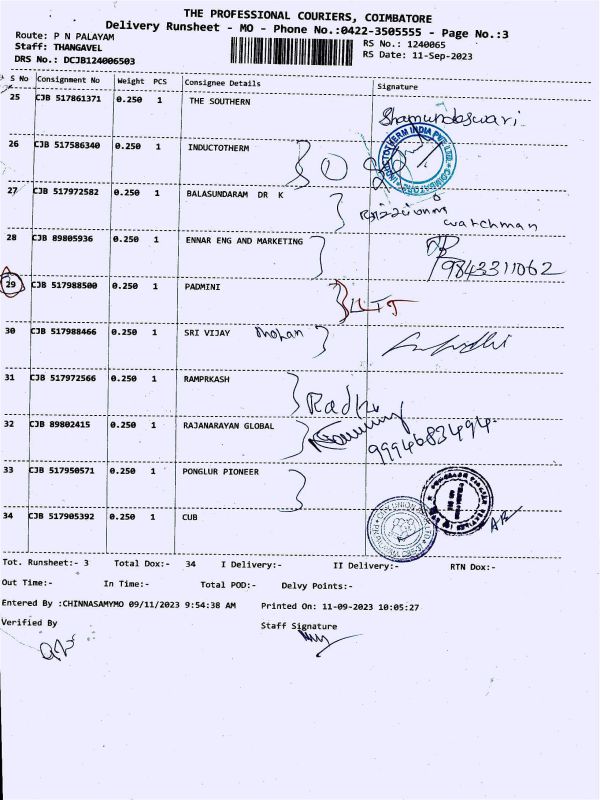 THE PROFESSIONAL COURIERS, COIMBATORE
Delivery Runsheet - MO - Phone No.:0422-3505555 - Page No.:3
Route: P N PALAYAM
Staff: THANGAVEL
DRS No.: DCJB124006503
RS No.: 1240065
RS Date: 11-Sep-2023
S No Consignment No Weight PCS Consignee Details Signature
25 CJB 517861371 0.250 1 THE SOUTHERN Shamundeswari
26 CJB 517586340 0.250 1 INDUCTOTHERM
INDUCTOTHERM INDIA PVT LTD. COIMBATORE
27 CJB 517972582 0.250 1 BALASUNDARAM DR K
watchman
28 CJB 89805936 0.250 1 ENNAR ENG AND MARKETING
9843311062
29 CJB 517988500 0.250 1 PADMINI
30 CJB 517988466 0.250 1 SRI VIJAY Mohan
31 CJB 517972566 0.250 1 RAMPRKASH
Radha
32 CJB 89802415 0.250 1 RAJANARAYAN GLOBAL
9994683494
33 CJB 517950571 0.250 1 PONGLUR PIONEER
34 CJB 517905392 0.250 1 CUB
Tot. Runsheet:- 3 Total Dox:- 34 I Delivery:- II Delivery:- RTN Dox:-
Out Time:- In Time:- Total POD:- Delvy Points:-
Entered By :CHINNASAMYMO 09/11/2023 9:54:38 AM Printed On: 11-09-2023 10:05:27
Verified By Staff Signature